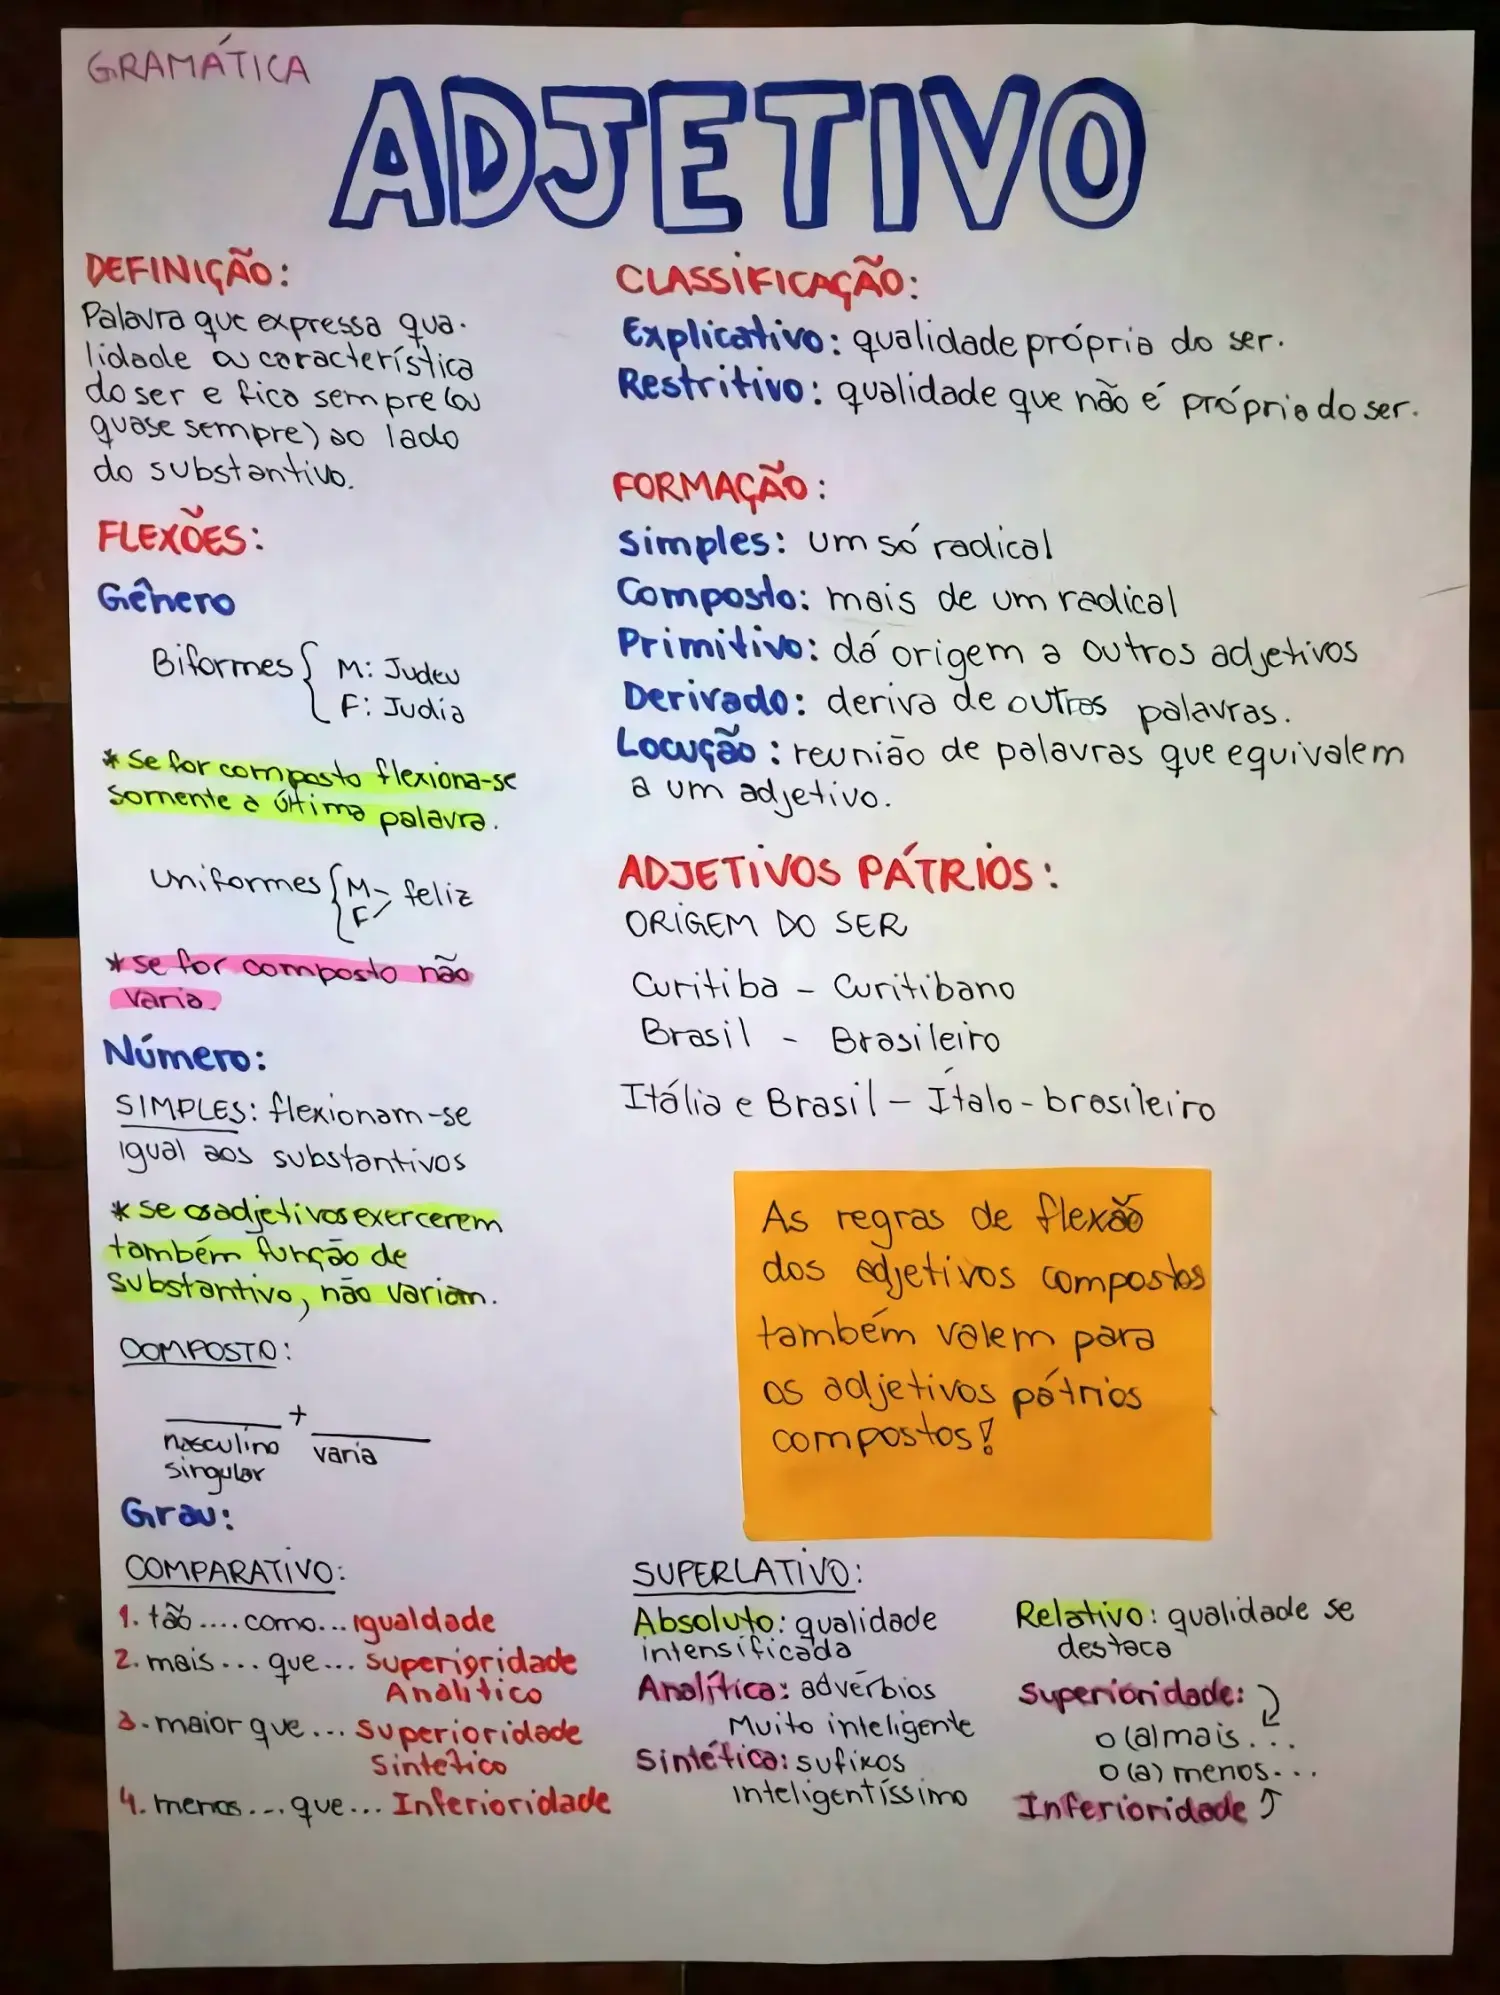 GRAMÁTICA
ADJETIVO
DEFINIÇÃO:
Palavra que expressa qua-
lidade ou característica
do ser e fica sempre (ou
quase sempre) ao lado
do substantivo.
FLEXÕES:
Gênero
Biformes { M: Judeu
F: Judia
* Se for composto flexiona-se
somente a última palavra.
Uniformes { M
F
feliz
* se for composto não
varia.
Número:
SIMPLES: flexionam-se
igual aos substantivos
* se os adjetivos exercerem
também função de
substantivo, não variam.
COMPOSTO:
+
masculino
singular
varia
Grau:
COMPARATIVO:
1. tão .... como... igualdade
2. mais ... que... Superioridade
Analítico
3. maior que ... Superioridade
Sintético
4. menos ... que... Inferioridade
CLASSIFICAÇÃO:
Explicativo: qualidade própria do ser.
Restritivo: qualidade que não é própria do ser.
FORMAÇÃO:
Simples: um só radical
Composto: mais de um radical
Primitivo: dá origem a outros adjetivos
Derivado: deriva de outras palavras.
Locução: reunião de palavras que equivalem
a um adjetivo.
ADJETIVOS PÁTRIOS:
ORIGEM DO SER
Curitiba - Curitibano
Brasil - Brasileiro
Itália e Brasil - Ítalo-brasileiro
As regras de flexão
dos adjetivos compostos
também valem para
os adjetivos pátrios
compostos!
SUPERLATIVO:
Absoluto: qualidade
intensificada
Analítica: advérbios
Muito inteligente
Sintética: sufixos
inteligentíssimo
Relativo: qualidade se
destaca
Superioridade:
o (a) mais...
o (a) menos...
Inferioridade